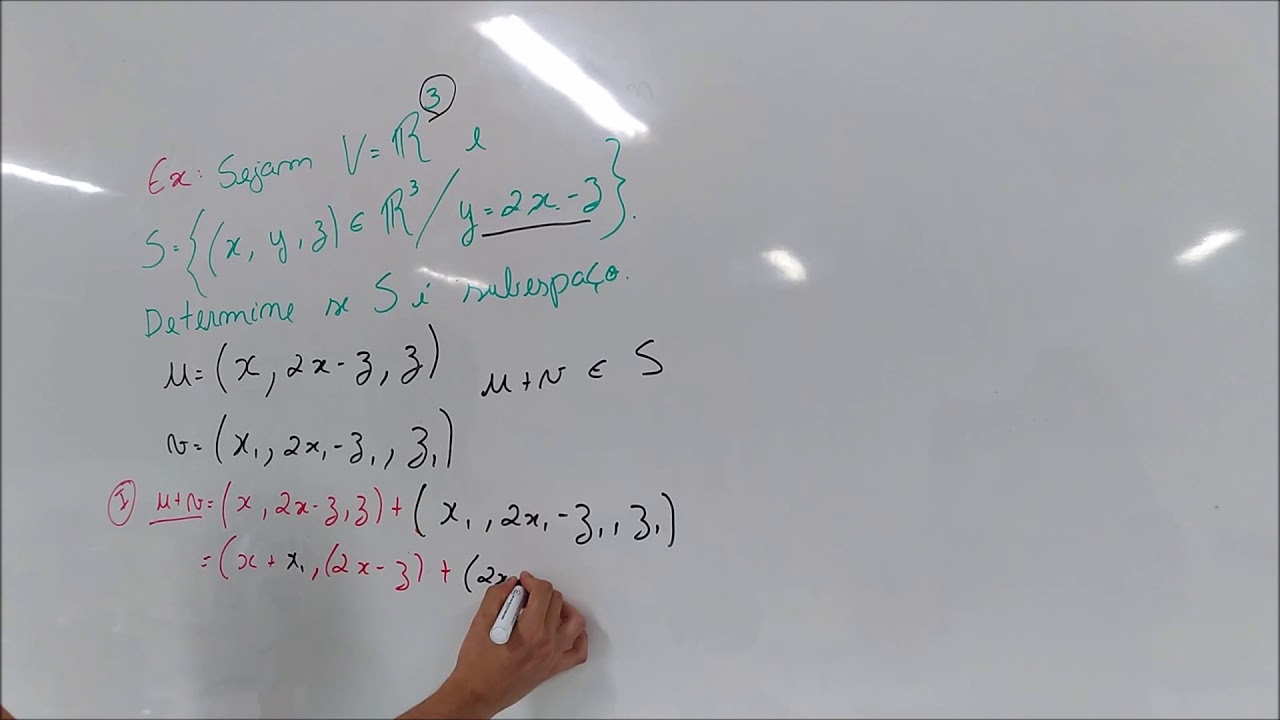 Ex: Sejam V = ℝ³ e
S = {(x, y, z) ∈ ℝ³ / y = 2x - z}.
Determine se S é subespaço.
u = (x, 2x - z, z) u + v ∈ S
v = (x₁, 2x₁ - z₁, z₁)
I u + v = (x, 2x - z, z) + (x₁, 2x₁ - z₁, z₁)
= (x + x₁, (2x - z) + (2x